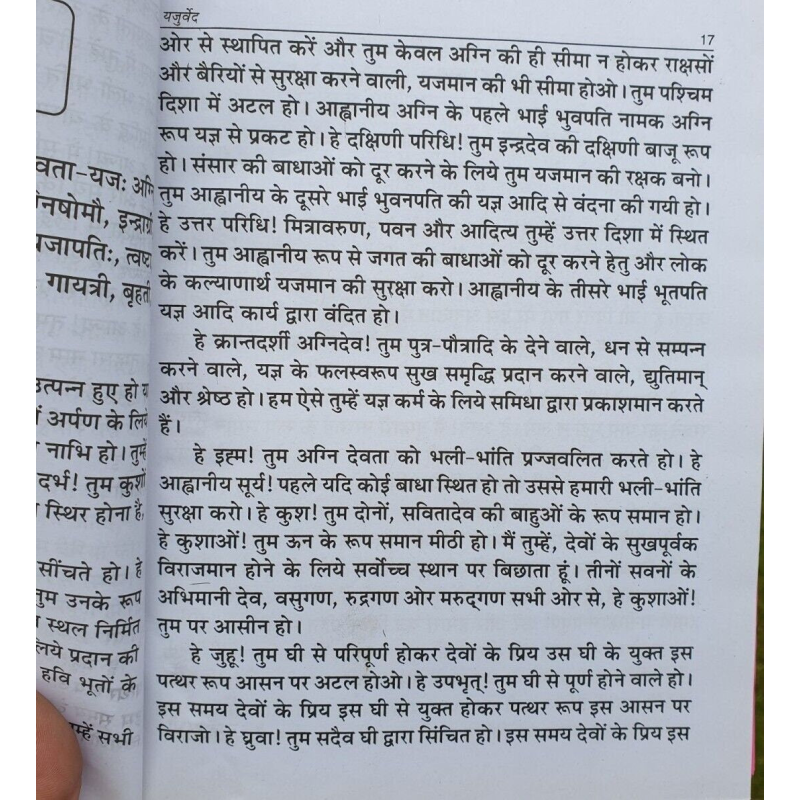 वता-यज: अग्नि
नषोमौ, इन्द्राग्नी
जापति:, त्वष्टा
गायत्री, बृहती
उत्पन्न हुए हो
अर्पण के लिये
नाभि हो। तुम्हें
दर्भ! तुम कुशों
स्थिर होना है,
सींचते हो। हे
तुम उनके रूप
स्थल निर्मित
लिये प्रदान की
हवि भूतों के
तुम्हें सभी
यजुर्वेद
17
ओर से स्थापित करें और तुम केवल अग्नि की ही सीमा न होकर राक्षसों
और बैरियों से सुरक्षा करने वाली, यजमान की भी सीमा होओ। तुम पश्चिम
दिशा में अटल हो। आह्वानीय अग्नि के पहले भाई भुवपति नामक अग्नि
रूप यज्ञ से प्रकट हो। हे दक्षिणी परिधि! तुम इन्द्रदेव की दक्षिणी बाजू रूप
हो। संसार की बाधाओं को दूर करने के लिये तुम यजमान की रक्षक बनो।
तुम आह्वानीय के दूसरे भाई भुवनपति की यज्ञ आदि से वंदना की गयी हो।
हे उत्तर परिधि! मित्रावरुण, पवन और आदित्य तुम्हें उत्तर दिशा में स्थित
करें। तुम आह्वानीय रूप से जगत की बाधाओं को दूर करने हेतु और लोक
के कल्याणार्थ यजमान की सुरक्षा करो। आह्वानीय के तीसरे भाई भूतपति
यज्ञ आदि कार्य द्वारा वंदित हो।
हे क्रान्तदर्शी अग्निदेव! तुम पुत्र-पौत्रादि के देने वाले, धन से सम्पन्न
करने वाले, यज्ञ के फलस्वरूप सुख समृद्धि प्रदान करने वाले, द्युतिमान्
और श्रेष्ठ हो। हम ऐसे तुम्हें यज्ञ कर्म के लिये समिधा द्वारा प्रकाशमान करते
हैं।
हे इह्म! तुम अग्नि देवता को भली-भांति प्रज्जवलित करते हो। हे
आह्वानीय सूर्य! पहले यदि कोई बाधा स्थित हो तो उससे हमारी भली-भांति
सुरक्षा करो। हे कुश! तुम दोनों, सवितादेव की बाहुओं के रूप समान हो।
हे कुशाओं! तुम ऊन के रूप समान मीठी हो। मैं तुम्हें, देवों के सुखपूर्वक
विराजमान होने के लिये सर्वोच्च स्थान पर बिछाता हूं। तीनों सवनों के
अभिमानी देव, वसुगण, रुद्रगण ओर मरुद्गण सभी ओर से, हे कुशाओं!
तुम पर आसीन हो।
हे जुहू! तुम घी से परिपूर्ण होकर देवों के प्रिय उस घी के युक्त इस
पत्थर रूप आसन पर अटल होओ। हे उपभृत्! तुम घी से पूर्ण होने वाले हो।
इस समय देवों के प्रिय इस घी से युक्त होकर पत्थर रूप इस आसन पर
विराजो। हे घ्रुवा! तुम सदैव घी द्वारा सिंचित हो। इस समय देवों के प्रिय इस